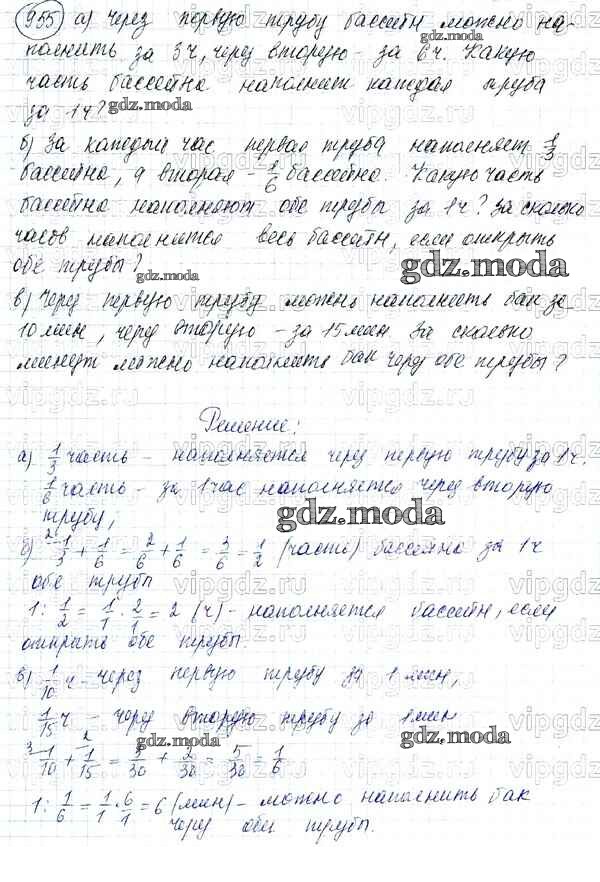 955 а) Через первую трубу бассейн можно на-
полнить за 3ч, через вторую - за 6ч. Какую
часть бассейна наполнит каждая труба
за 1ч?
gdz.moda
б) За каждый час первая труба наполняет 1/3
бассейна, а вторая - 1/6 бассейна. Какую часть
бассейна наполняют обе трубы за 1ч? За сколько
часов наполнится весь бассейн, если открыть
обе трубы?
gdz.moda
gdz.moda
в) Через первую трубу можно наполнить бак за
10 мин, через вторую - за 15 мин За сколько
минут можно наполнить бак через обе трубы?
Решение:
а) 1/3 часть - наполняется через первую трубу за 1ч.
gdz.moda
1/6 часть - за 1 час наполняется через вторую
трубу;
gdz.moda
б) 1/3 + 1/6 = 2/6 + 1/6 = 3/6 = 1/2 (часть) бассейна за 1ч
обе трубы
1 : 1/2 = 1/1 · 2/1 = 2 (ч) - наполняется бассейн, если
открыть обе трубы.
в) 1/10 ч - через первую трубу за 1 мин,
1/15 ч - через вторую трубу за 1 мин
gdz.moda
gdz.moda
1/10 + 1/15 = 3/30 + 2/30 = 5/30 = 1/6
1 : 1/6 = 1/1 · 6/1 = 6 (мин) - можно наполнить бак
через обе трубы.
vipgdz.ru